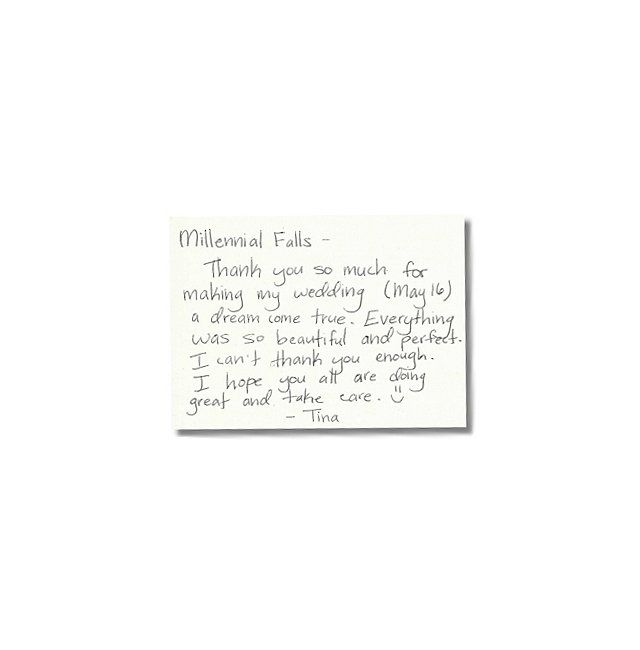 Millennial Falls -
Thank you so much for
making my wedding (May 16)
a dream come true. Everything
was so beautiful and perfect.
I can't thank you enough.
I hope you all are doing
great and take care. :)
- Tina